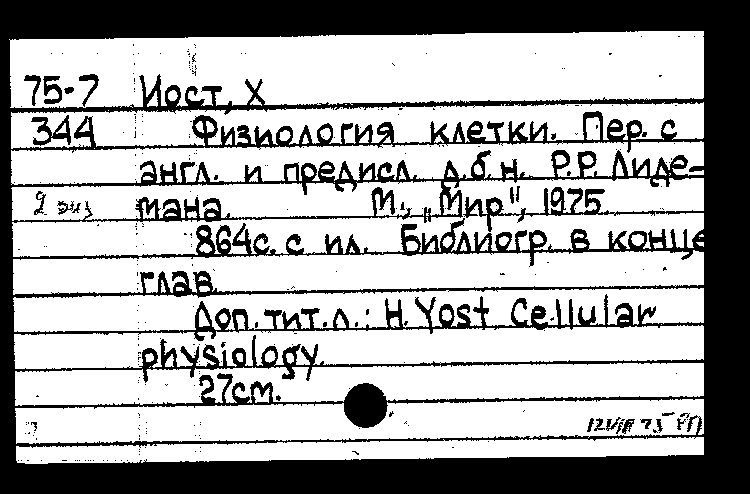 75-7 Йост, Х
344 Физиология клетки. Пер. с
англ. и предисл. д.б.н. Р.Р. Лиде=
2 экз мана. М., „Мир", 1975
864с. с ил. Библиогр. в конце
глав.
Доп. тит. л.: H. Yost Cellular
physiology.
27см.